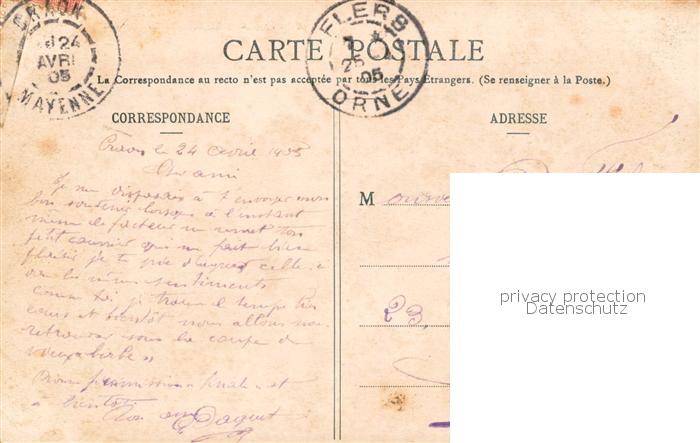 CRAON
24
AVRI
05
MAYENNE
FLERS
25
05
ORNE
CARTE POSTALE
La Correspondance au recto n'est pas acceptée par tous les Pays Étrangers. (Se renseigner à la Poste.)
CORRESPONDANCE
ADRESSE
Craon le 24 avril 1905
Cher ami
Je me disposais à t'envoyer mon
bon souvenir lorsque à l'instant
même le facteur me remet ton
petit courrier qui me fait bien
plaisir je te prie d'agréer celle-ci
les mêmes sentiments
comme toi, je trouve le temps très
et bientôt nous allons nous
retrouver sous la coupe de
vieux
Bonne permission et
à bientôt
Ton ami
M
23,
privacy protection
Datenschutz